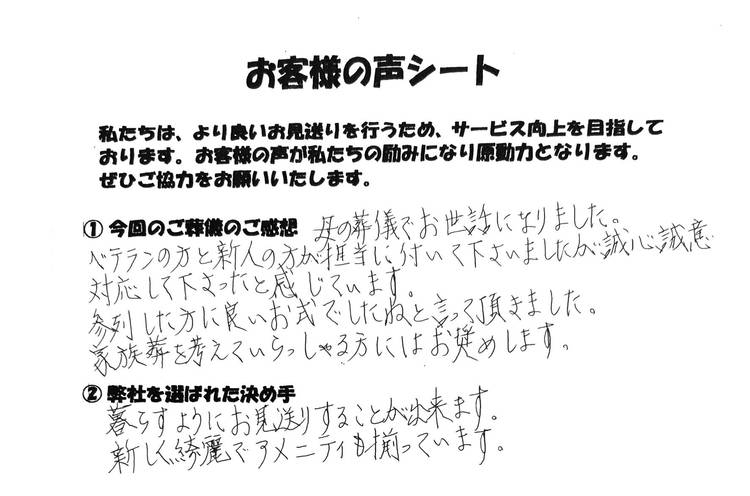 お客様の声シート
私たちは、より良いお見送りを行うため、サービス向上を目指して
おります。お客様の声が私たちの励みになり原動力となります。
ぜひご協力をお願いいたします。
① 今回のご葬儀のご感想 母の葬儀でお世話になりました。
ベテランの方と新人の方が担当に付いて下さいましたが誠心誠意
対応して下さったと感じています。
参列した方に良いお式でしたねと言って頂きました。
家族葬を考えていらっしゃる方にはお奨めします。
② 弊社を選ばれた決め手
暮らすようにお見送りすることが出来ます。
新しく綺麗でアメニティも揃っています。